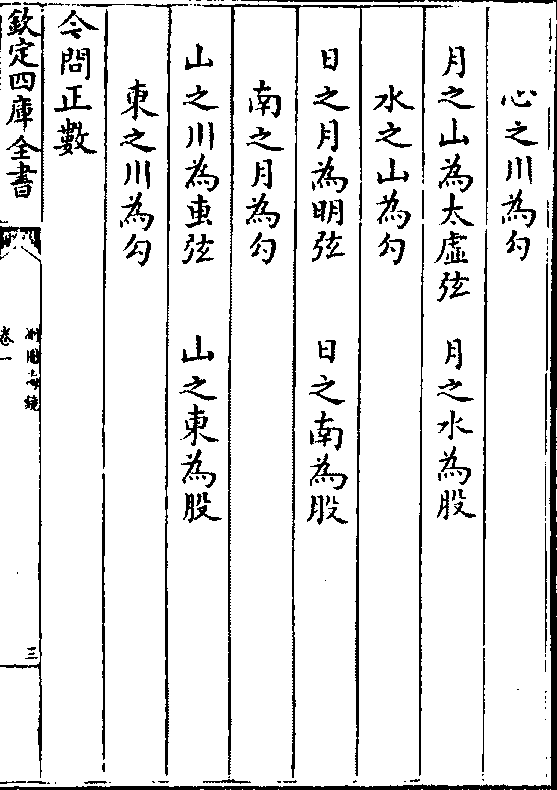 心之川為勾
月之山為太虛弦　月之水為股
水之山為勾
日之月為明弦　日之南為股
南之月為勾
山之川為叀弦　山之東為股
東之川為勾
今問正數
欽定四庫全書
測圓海鏡
卷一
三